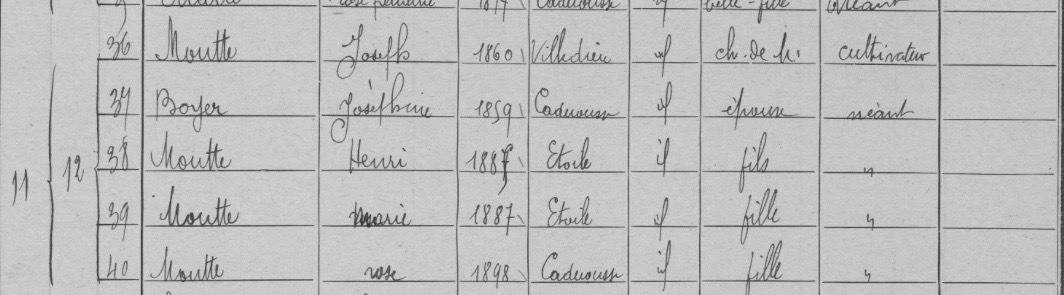 36 Moutte Joseph 1860 Villedieu if ch. de m. cultivateur
37 Boyer Joséphine 1859 Caderousse if épouse néant
38 Moutte Henri 1887 Etoile if fils "
11 12
39 Moutte marie 1887 Etoile if fille "
40 Moutte rose 1898 Caderousse if fille "